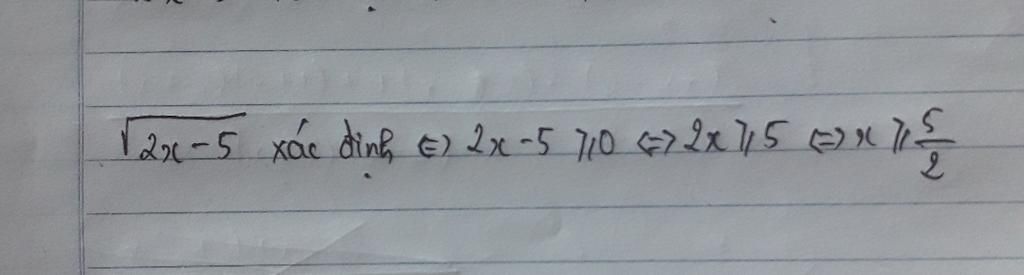 √(2x-5) xác định ⇔ 2x-5 ⩾ 0 ⇔ 2x ⩾ 5 ⇔ x ⩾ 5/2